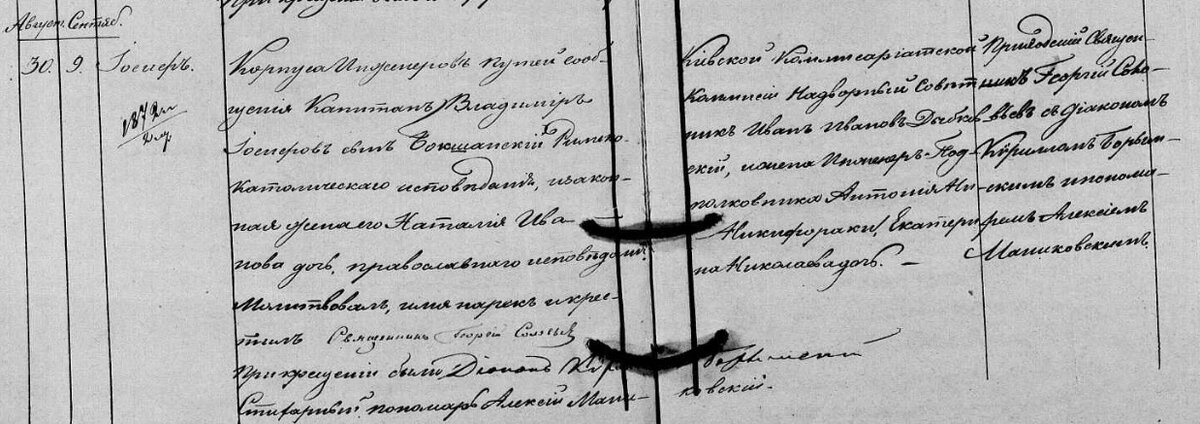 при крещении
Август. Сентяб.
30. 9. Іосиѳъ.
1872 г.
Корпуса Инженеровъ путей сооб-
щенія Капитанъ Владиміръ
Іосиѳовъ сынъ Бокшанскій Римско-
Католическаго исповѣданія, и закон-
ная жена его Наталія Ива-
нова дочь, православнаго исповѣданія.
Молитвовалъ, имя нарекъ и крес-
тилъ Священникъ Георгій Соловьевъ
При крещеніи были Діаконъ
пономарь Алексій Мани-
Кіевской Коммисаріатской
Коммисіи Надворный Совѣт-
никъ Иванъ Ивановъ
скій, и жена Инженеръ-Под-
полковника Антонія Ни-
Никифораки, Екатери-
на Николаева дочь. —
ковскій.
Приходскій Священ-
никъ Георгій Соло-
вьевъ съ діакономъ
Кирилломъ
скимъ и понома-
ремъ Алексіемъ
Маниковскимъ.